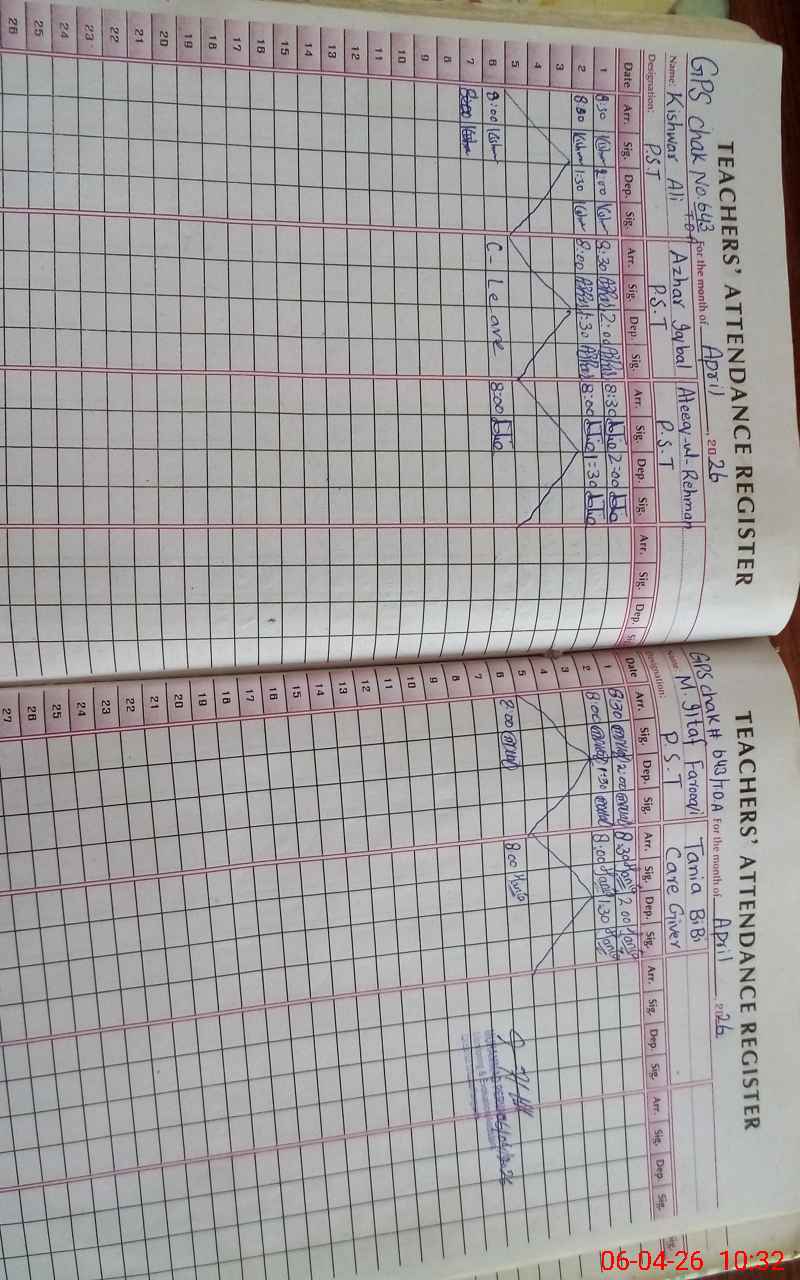 TEACHERS' ATTENDANCE REGISTER
GPS chak No 643 TDA For the month of April, 2026
Name: Kishwar Ali Azhar Iqbal Ateeq-ul-Rehman
Designation: P.S.T P.S.T P.S.T
Date Arr. Sig. Dep. Sig. Arr. Sig. Dep. Sig. Arr. Sig. Dep. Sig. Arr. Sig. Dep. Si
1 8:30 2:00 8:30 2:00 8:30 2:00
2 8:00 1:30 8:00 1:30 8:00 1:30
3
4
5
6 8:00 C- Leave 8:00
7
8
9
10
11
12
13
14
15
16
17
18
19
20
21
22
23
24
25
26
TEACHERS' ATTENDANCE REGISTER
GPS chak # 643/TDA For the month of April, 2026
Name: M. Iltaf Farooqi Tania BiBi
Designation: P.S.T Care Giver
Date Arr. Sig. Dep. Sig. Arr. Sig. Dep. Sig. Arr. Sig. Dep. Sig. Arr. Sig. Dep. Sig.
1 8:30 2:00 8:30 Tania 2:00 Tania
2 8:00 1:30 8:00 Tania 1:30 Tania
3
4
5
6 8:00 8:00 Tania
7
8
9
10
11
12
13
14
15
16
17
18
19
20
21
22
23
24
25
26
27
06-04-26 10:32